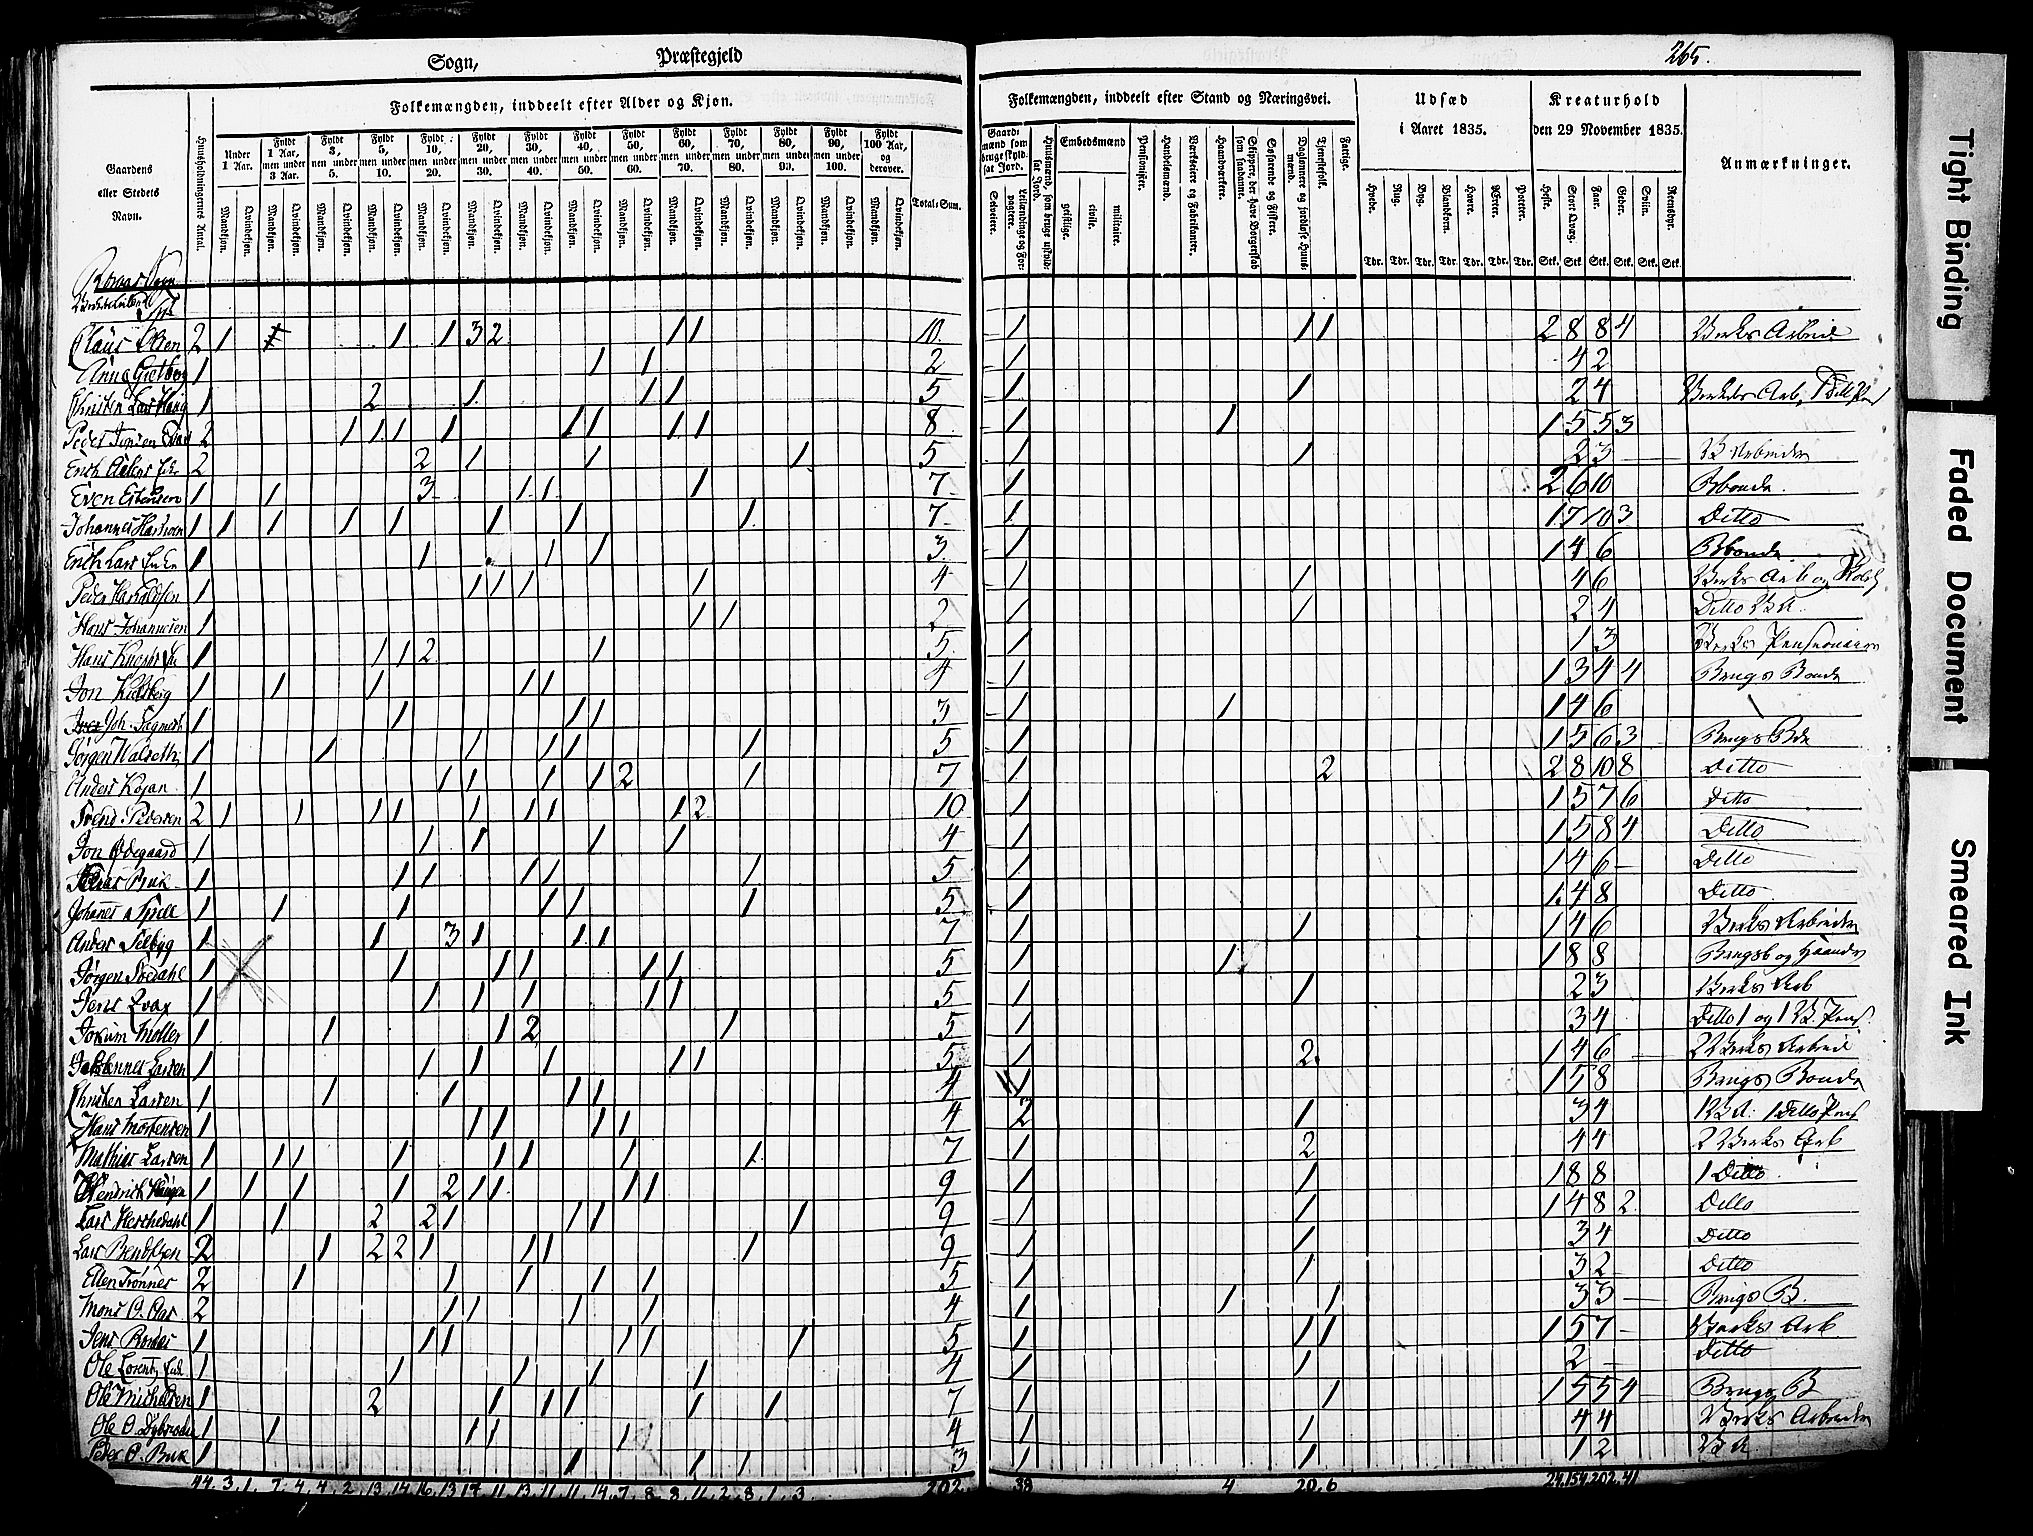 Sogn, Præstegjeld
265.
Folkemængden, inddeelt efter Alder og Kjøn.
Folkemængden, inddeelt efter Stand og Næringsvei.
Udsæd i Aaret 1835.
Kreaturhold den 29 November 1835.
Anmærkninger.
Gaardens eller Stedets Navn.
Huusholdningernes Antal.
Under 1 Aar.
Fyldt 1 Aar, men under 3 Aar.
Fyldt 3, men under 5.
Fyldt 5, men under 10.
Fyldt 10, men under 20.
Fyldt 20, men under 30.
Fyldt 30, men under 40.
Fyldt 40, men under 50.
Fyldt 50, men under 60.
Fyldt 60, men under 70.
Fyldt 70, men under 80.
Fyldt 80, men under 90.
Fyldt 90, men under 100.
Fyldt 100 Aar, og derover.
Total-Sum.
Mandkjøn. Qvindekjøn.
Gaardmænd som bruge skyldsat Jord.
Selveiere.
Leilændinge og Forpagtere.
Huusmænd, som bruge uskyldsat Jord.
Embedsmænd
geistlige. civile. militaire.
Pensionister.
Handelsmænd.
Værkseiere og Fabrikanter.
Haandværkere.
Skippere, der have Borgerskab som saadanne.
Søfarende og Fiskere.
Daglønnere og jordløse Huusmænd.
Tjenestefolk.
Fattige.
Hvede. Rug. Byg. Blandkorn. Havre. Erter. Poteter.
Tdr. Tdr. Tdr. Tdr. Tdr. Tdr. Tdr.
Heste. Stort Qvæg. Faar. Geder. Sviin. Rensdyr.
Stk. Stk. Stk. Stk. Stk. Stk.
Claus Olsen 2 1 1 1 3 2 1 1 10. 1 1 1 2 8 8 4 Verks Arbeid
Anna Gielbog 1 1 1 2 1 4 2
1 2 1 1 1 5 1 1 2 4
2 1 1 1 1 1 1 1 1 8 1 1 1 5 5 3
2 2 1 1 1 5 1 1 2 3 V Arbeider
Even Estensen 1 1 3 1 1 1 7 1 2 6 10 Bbonde.
1 1 1 1 1 1 1 1 7 1 1 7 10 3 Ditto
Erich Lars Enke 1 1 1 1 3 1 1 4 6 Bbonde
Peder Haraldsen 1 1 1 1 1 4 1 1 4 6
Hans Johannesen 1 1 1 2 1 1 2 4 Ditto V A.
1 1 1 2 1 5 1 1 3 Verks Pensionair
1 1 1 1 1 4 1 1 3 4 4 Brugs Bonde
1 1 1 1 3 1 1 1 4 6
Jørgen Walseth 1 1 1 1 1 1 5 1 1 5 6 3 Brugs Bde
Anders Kojan 1 1 1 1 1 2 1 7 1 2 2 8 10 8 Ditto
Svend Pedersen 2 1 1 1 1 1 1 1 1 2 10 1 1 5 7 6 Ditto
Jon Ødegaard 1 1 1 1 1 4 1 1 5 8 4 Ditto
1 1 1 1 1 1 5 1 1 4 6 Ditto
1 1 1 1 1 1 5 1 1 4 8 Ditto
Anders Selbyg 1 1 3 1 1 1 7 1 1 1 4 6 Verks Arbeider
Jørgen Svedahl 1 1 1 1 1 1 5 1 1 1 8 8
1 1 1 1 1 1 5 1 1 2 3 Verks Arb
Jokum Møller 1 1 1 2 1 5 1 3 4 Ditto 1 og 1 V. Pens.
Johannes Larsen 1 1 1 1 1 1 5 1 2. 1 4 6 2 Verks Arbeid
Christen Larsen 1 1 1 1 1 4 1 1 5 8 Brugs Bonde
Hans Mortensen 1 1 1 1 1 4 2 1 3 4 1 V A. 1 Ditto Pens
Mathias Larsen 1 1 1 1 1 1 1 1 7 1 2 4 4 2 Verks Arb
Hendrich Haugen 1 1 1 1 2 1 1 1 1 9 1 1 1 8 8 1 Ditto
1 1 2 2 1 1 1 1 9 1 1 1 4 8 2 Ditto
Lars Bendtzen 2 1 2 2 1 1 1 1 9 1 1 3 4 Ditto
Ellen Trønnes 2 1 1 1 1 1 5 1 1 3 2 Ditto
Mons O. Aas 2 1 1 1 1 4 1 1 1 3 3 Brugs B.
1 1 1 1 1 1 5 1 1 1 1 5 7 Verks Arb
1 1 1 1 1 4 1 1 2 Ditto
Ole Michelsen 1 2 1 1 1 1 1 7 1 1 1 5 5 4 Brugs B
1 1 1 1 1 4 1 1 4 4 Verks Arbeider
Peder O. Buk 1 1 1 1 3 1 1 1 2 V A
44. 3. 1. 7. 4. 4. 2. 13. 14. 16. 13. 17. 11. 13. 11. 11. 14. 7. 8. 8. 11. 2. 8. 1. 3. 202. 38 4 20. 6 24. 154. 202. 41
Tight Binding
Faded Document
Smeared Ink